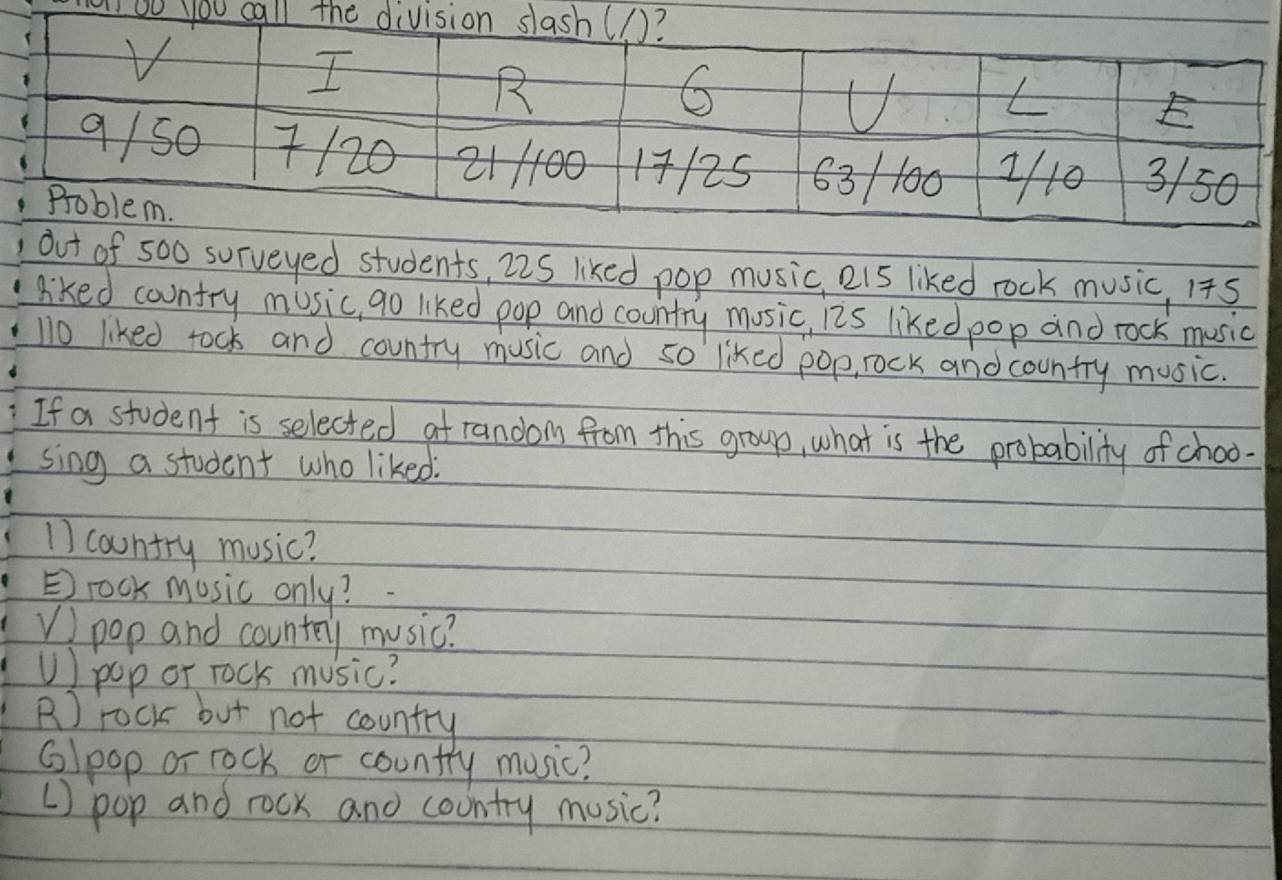 do you call the division slash (/)?
V I R G U L E
9/50 7/20 21/100 17/25 63/100 1/10 3/50
Problem.
Out of 500 surveyed students, 225 liked pop music, 215 liked rock music, 175
liked country music, 90 liked pop and country music, 125 liked pop and rock music
110 liked rock and country music and 50 liked pop, rock and country music.
If a student is selected at random from this group, what is the probability of choo-
sing a student who liked:
I) country music?
E) rock music only?
V) pop and country music?
U) pop or rock music?
R) rock but not country
G) pop or rock or country music?
L) pop and rock and country music?